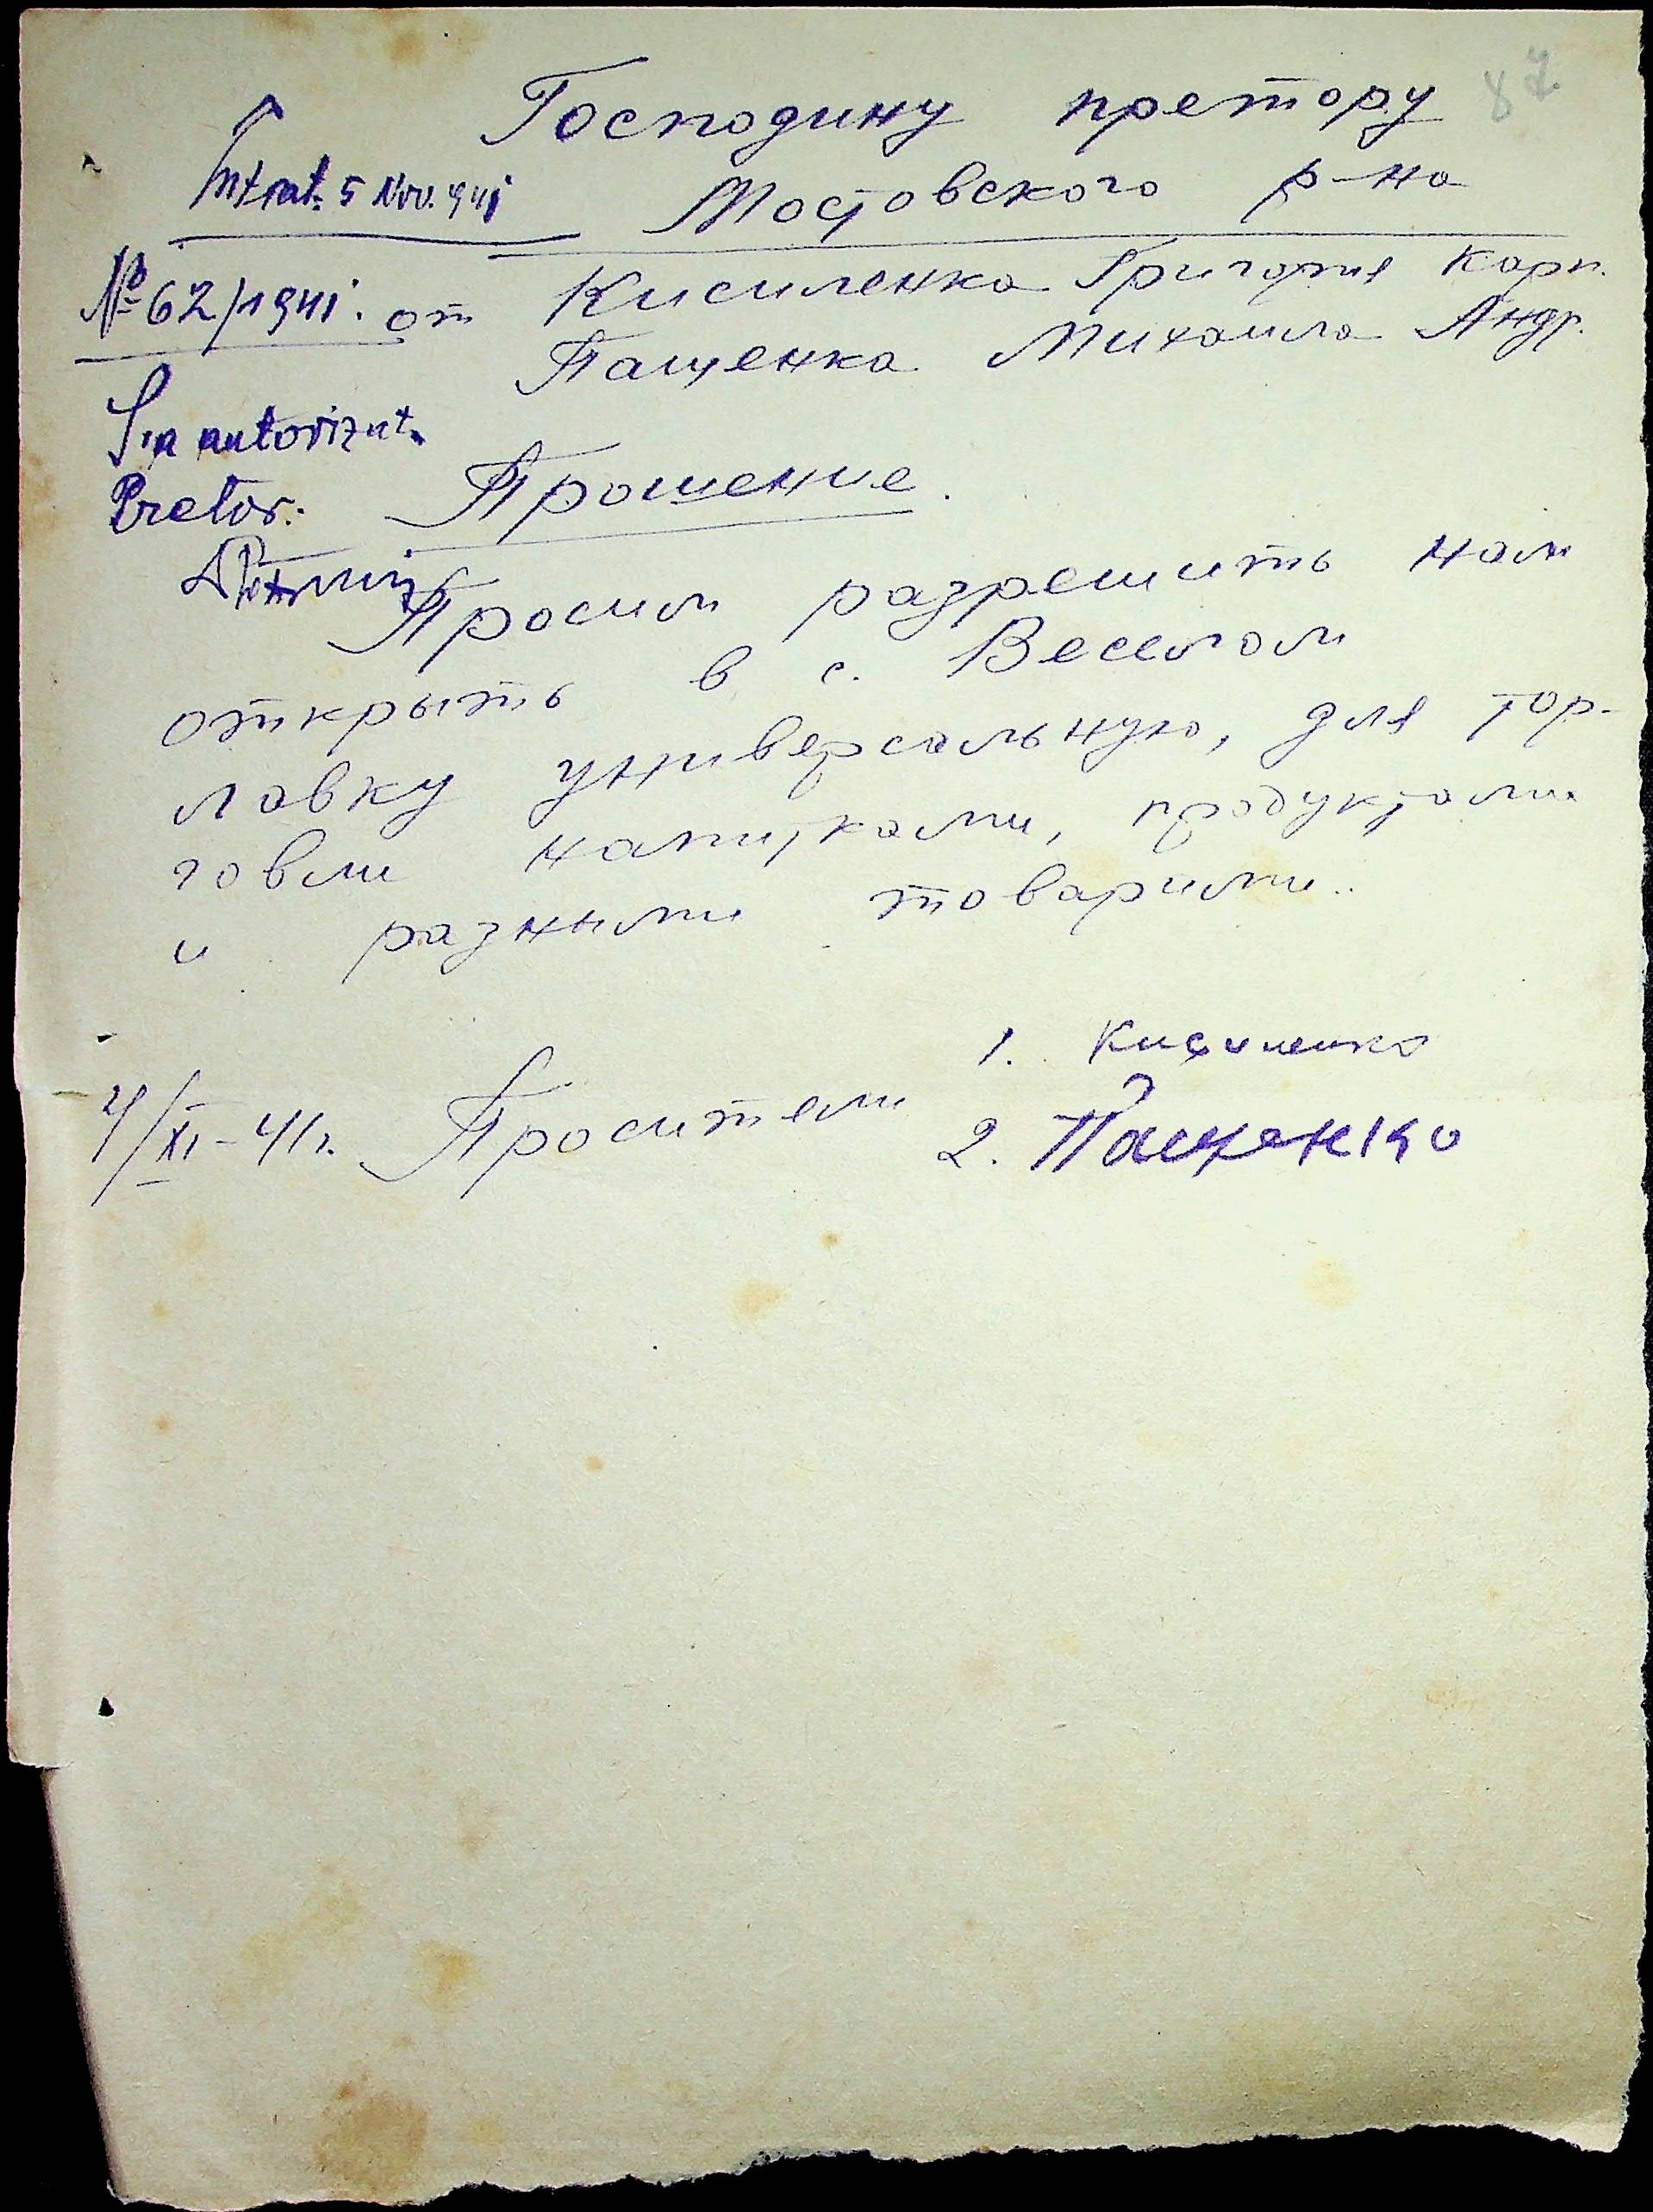 87
Господину претору
Intrat. 5 Nov. 941
Мостовского р-на
№ 62/1941. от Кисиленка Григория Карп.
Пащенка Михаила Андр.
S'a autorizat.
Pretor:
Прошение.
Просим разрешить нам
открыть в с. Веселом
лавку универсальную, для тор-
говли напитками, продуктами
и разными товарами.
4/XI-41г. Просители
1. Кисиленко
2. Пащенко